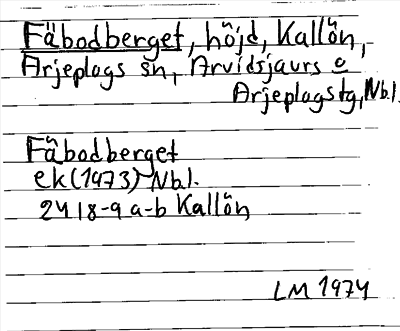 Fäbodberget, höjd, Kallön,
Arjeplogs sn, Arvidsjaurs o
Arjeplogs tg, Nbl.
Fäbodberget
ek (1973) Nbl.
24 I 8-9 a-b Kallön
LM 1974